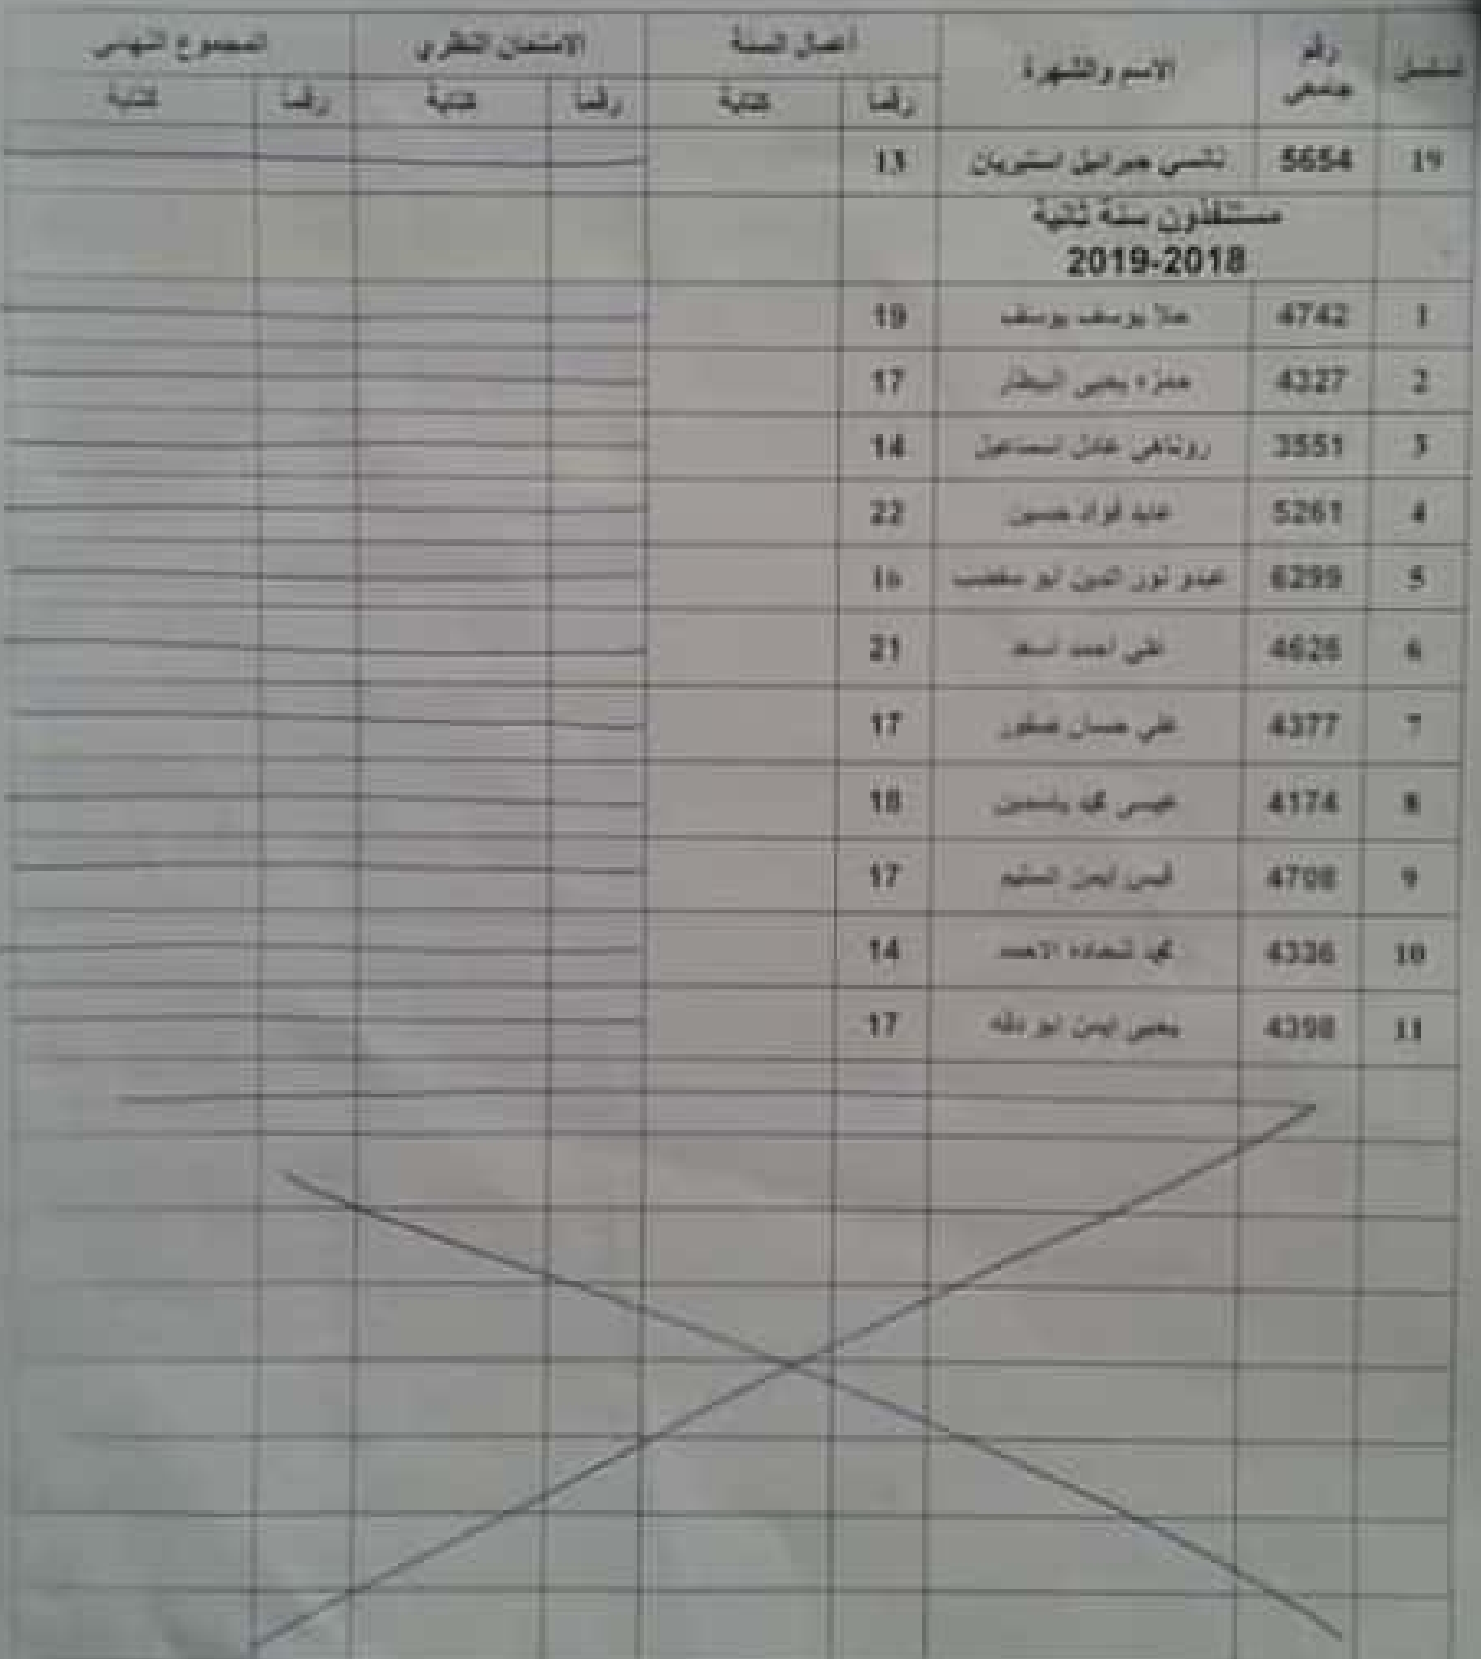 تسلسل رقم جامعي الاسم والشهرة أعمال السنة الامتحان النظري المجموع النهائي
رقماً كتابة رقماً كتابة رقماً كتابة
19 5654 نانسي جبرائيل استيريان 13
مستنفذون سنة ثانية
2019-2018
1 4742 علا يوسف يوسف 19
2 4327 حمزه يحيى البيطار 17
3 3551 روناهي عادل اسماعيل 14
4 5261 عابد فؤاد حسين 22
5 6299 عبدو نور الدين ابو مغضب 16
6 4626 علي احمد اسعد 21
7 4377 علي حسان صقور 17
8 4174 عيسى محمد ياسمين 18
9 4708 قيس ايمن السليم 17
10 4336 محمد شحاده الاحمد 14
11 4398 يحيى ايمن ابو دقه 17